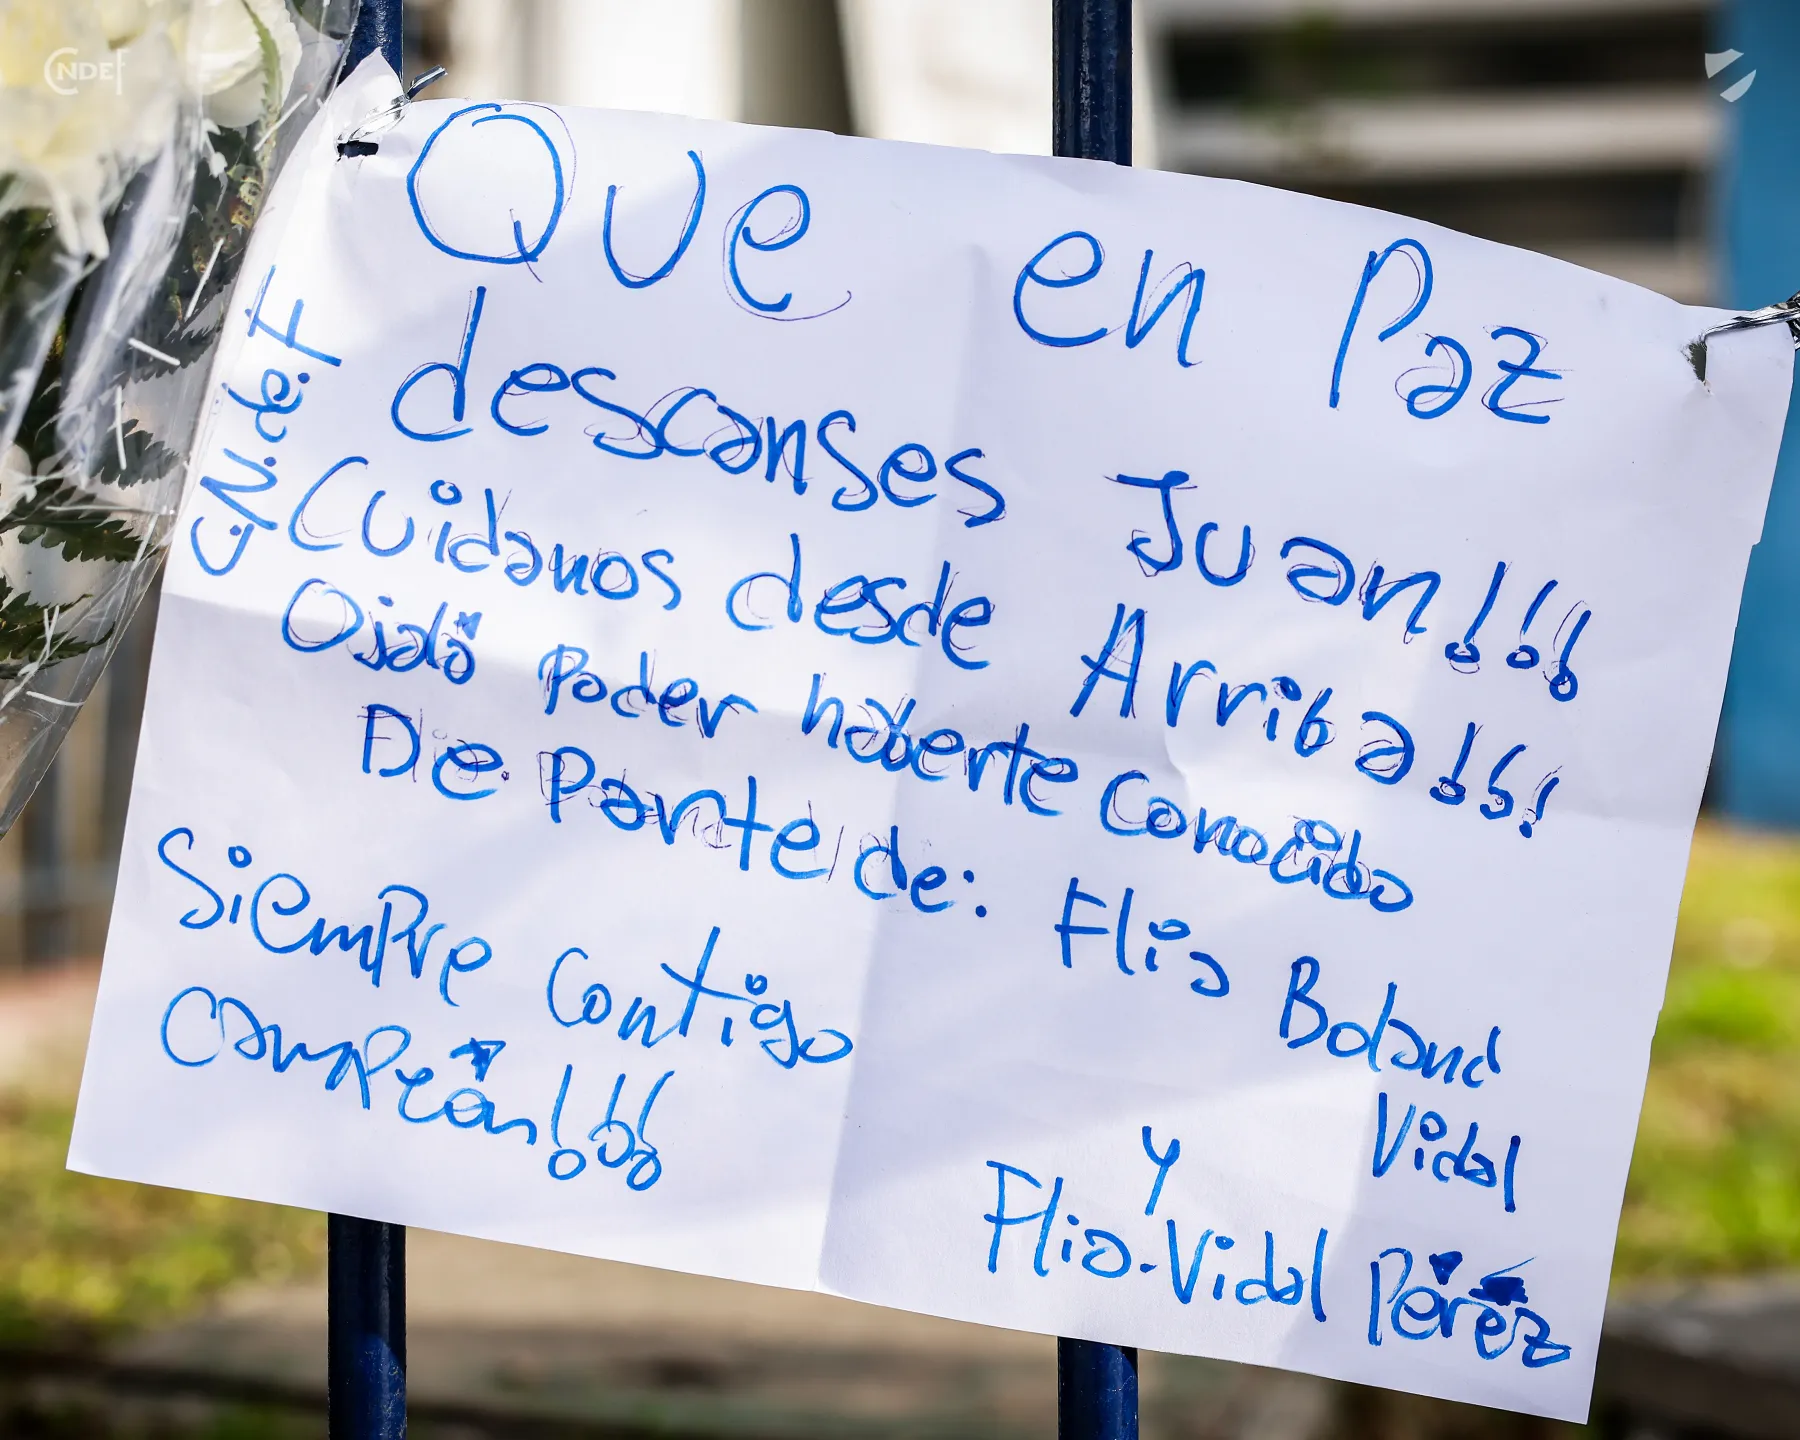 CNDEF
Que en Paz
descanses Juan!!!
C.N.de.F
Cuidanos desde Arriba!!!
Ojalá poder haberte conocido
De Parte de: Flia Boland
Vidal
Siempre contigo
campeón!!!
y
Flia. Vidal Pérez